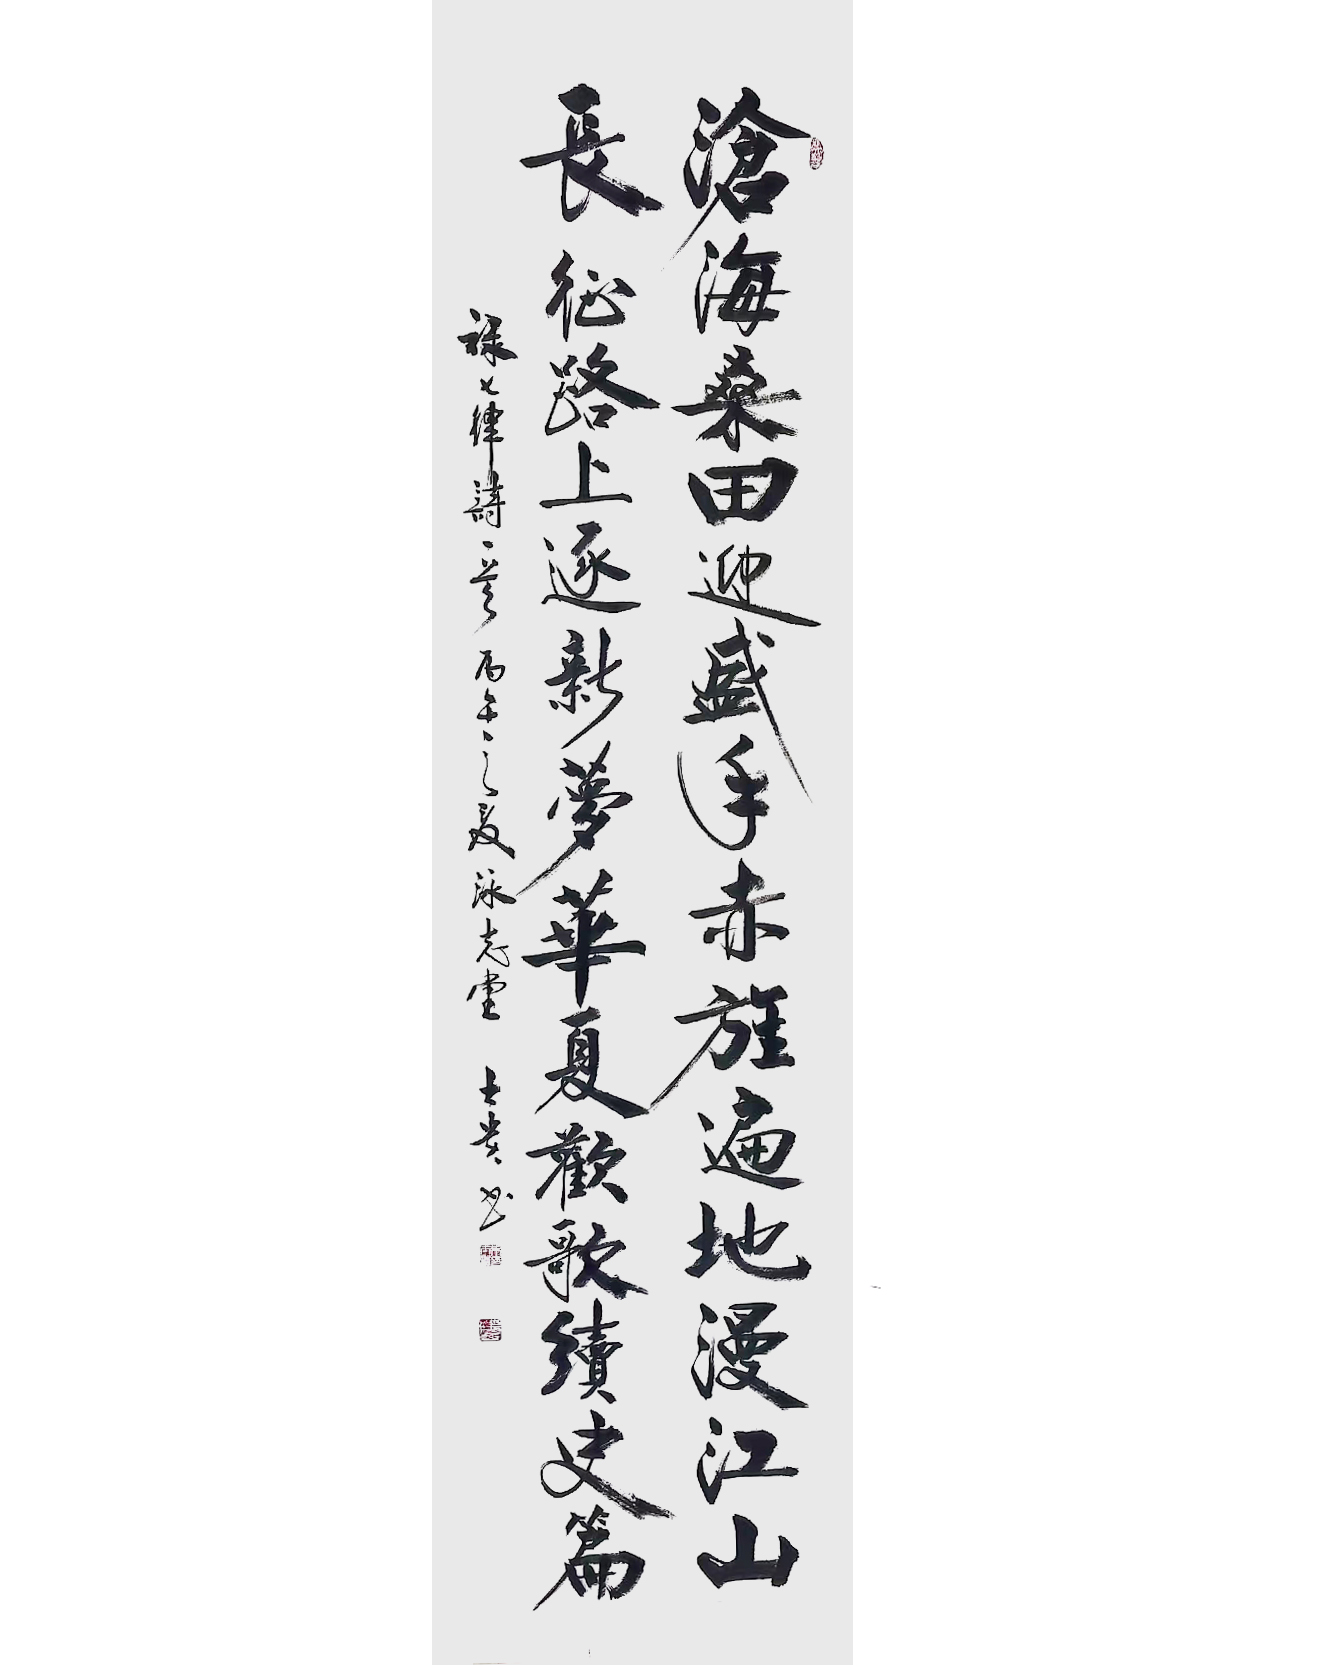 滄海桑田迎盛年赤旌遍地漫江山
長征路上逐新夢華夏歡歌續史篇
禄七律詩一首丙午之夏泳志堂士贵书